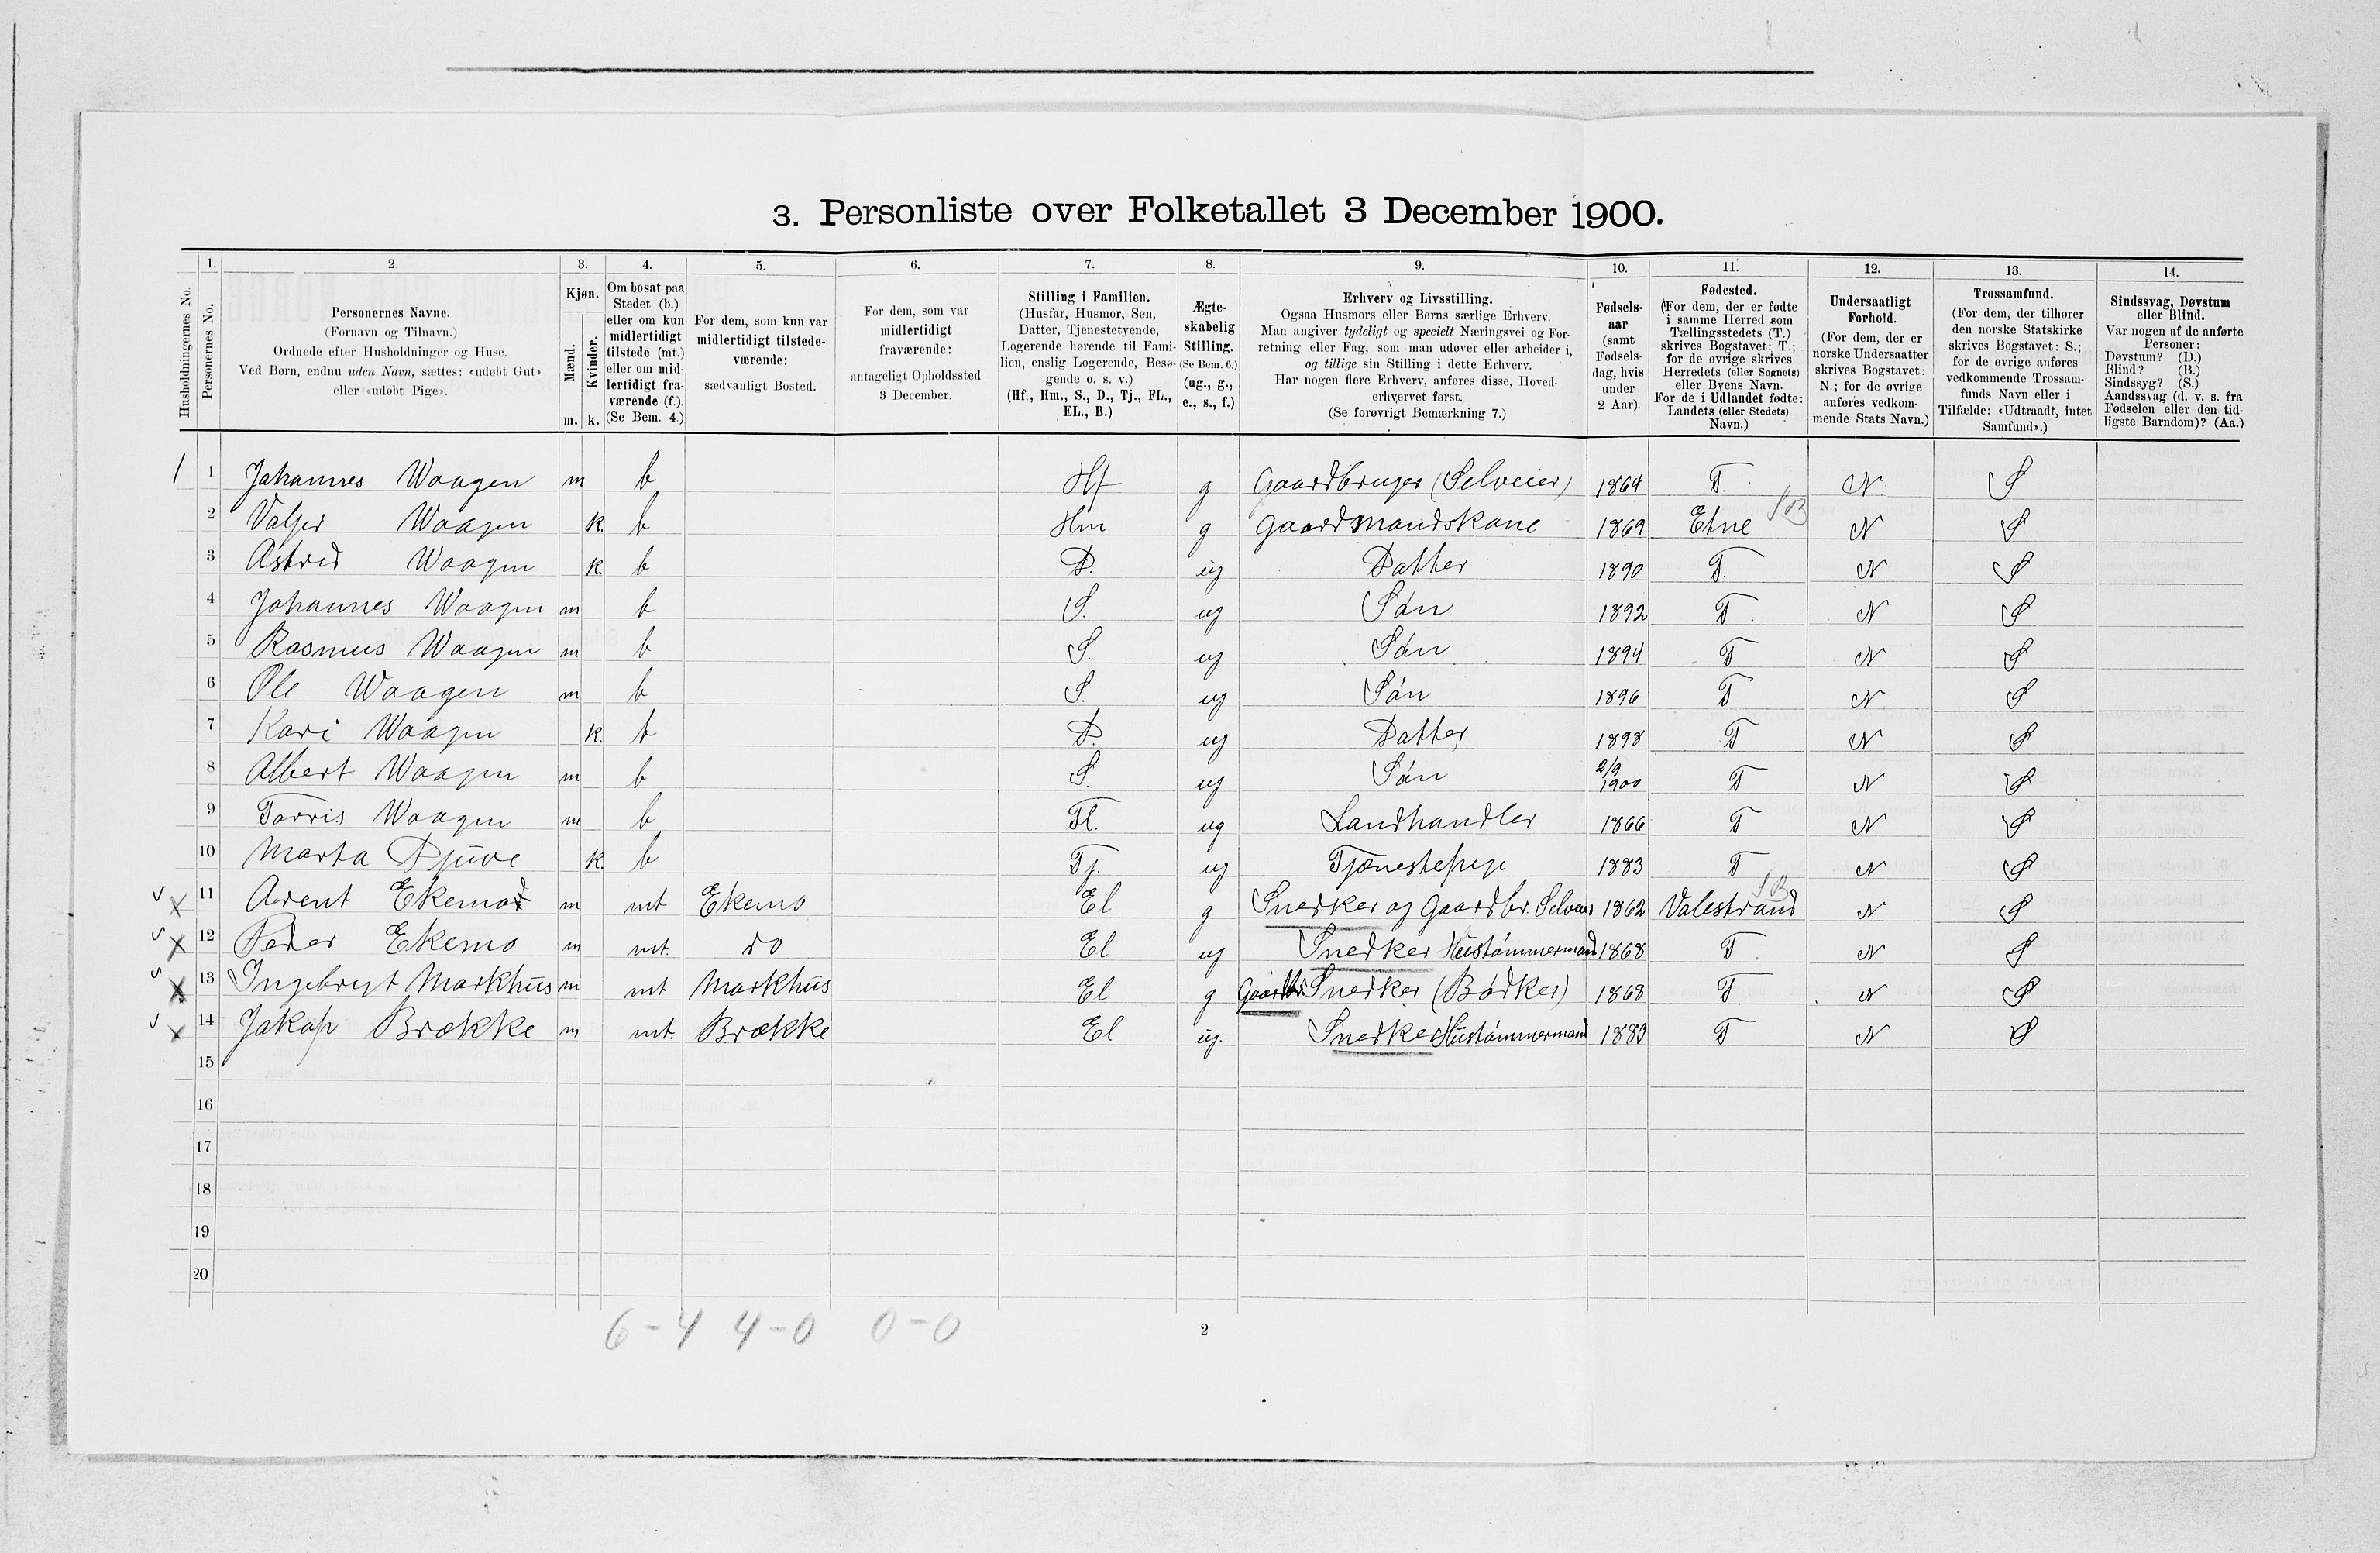 3. Personliste over Folketallet 3 December 1900.
1. 2. 3. 4. 5. 6. 7. 8. 9. 10. 11. 12. 13. 14.
Husholdningernes No.
Personernes No.
Personernes Navne.
(Fornavn og Tilnavn.)
Ordnede efter Husholdninger og Huse.
Ved Børn, endnu uden Navn, sættes: «udøbt Gut»
eller «udøbt Pige».
Kjøn.
Mænd.
Kvinder.
m. k.
Om bosat paa
Stedet (b.)
eller om kun
midlertidigt
tilstede (mt.)
eller om mid-
lertidigt fra-
værende (f.).
(Se Bem. 4.)
For dem, som kun var
midlertidigt tilstede-
værende:
sædvanligt Bosted.
For dem, som var
midlertidigt
fraværende:
antageligt Opholdssted
3 December.
Stilling i Familien.
(Husfar, Husmor, Søn,
Datter, Tjenestetyende,
Logerende hørende til Fami-
lien, enslig Logerende, Besø-
gende o. s. v.)
(Hf., Hm., S., D., Tj., FL.,
EL., B.)
Ægte-
skabelig
Stilling.
(Se Bem. 6.)
(ug., g.,
e., s., f.)
Erhverv og Livsstilling.
Ogsaa Husmors eller Børns særlige Erhverv.
Man angiver tydeligt og specielt Næringsvei og For-
retning eller Fag, som man udøver eller arbeider i,
og tillige sin Stilling i dette Erhverv.
Har nogen flere Erhverv, anføres disse, Hoved-
erhvervet først.
(Se forøvrigt Bemærkning 7.)
Fødsels-
aar
(samt
Fødsels-
dag, hvis
under
2 Aar).
Fødested.
(For dem, der er fødte
i samme Herred som
Tællingsstedets (T.)
skrives Bogstavet: T.;
for de øvrige skrives
Herredets (eller Sognets)
eller Byens Navn.
For de i Udlandet fødte:
Landets (eller Stedets)
Navn.)
Undersaatligt
Forhold.
(For dem, der er
norske Undersaatter
skrives Bogstavet:
N.; for de øvrige
anføres vedkom-
mende Stats Navn.)
Trossamfund.
(For dem, der tilhører
den norske Statskirke
skrives Bogstavet: S.;
for de øvrige anføres
vedkommende Trossam-
funds Navn eller i
Tilfælde: «Udtraadt, intet
Samfund».)
Sindssvag, Døvstum
eller Blind.
Var nogen af de anførte
Personer:
Døvstum? (D.)
Blind? (B.)
Sindssyg? (S.)
Aandssvag (d. v. s. fra
Fødselen eller den tid-
ligste Barndom)? (Aa.)
1 1 Johannes Waagen m b Hf g Gaardbruger (Selveier) 1864 T. N. S
2 Waagen k. b Hm. g Gaardmandskone 1869 Etne SB N S
3 Astrid Waagen k. b D. ug Datter 1890 T. N S
4 Johannes Waagen m b S. ug Søn 1892 T. N S
5 Rasmus Waagen m b S. ug Søn 1894 T N S
6 Ole Waagen m b S. ug Søn 1896 T N S
7 Kari Waagen k. b D. ug Datter 1898 T N S
8 Albert Waagen m b S. ug Søn 2/9 1900 T N S
9 Torris Waagen m b Fl. ug Landhandler 1866 T N S
10 Marta Djuve k. b Tj. ug Tjenestepige 1883 T N S
x 11 Arent Ekemo m mt Ekemo El g Snedker og Gaardbr. Selveier 1862 Valestrand SB N S
x 12 Peder Ekemo m mt. do El ug Snedker Hustømmermand 1868 T. N S
x 13 Ingebrigt Markhus m mt Markhus El g Gaardbr. Snedker (Bødker) 1868 T. N S
x 14 Jakop Brække m mt. Brække El ug. Snedker Hustømmermand 1880 T N S
15
16
17
18
19
20
6-4 4-0 0-0
2